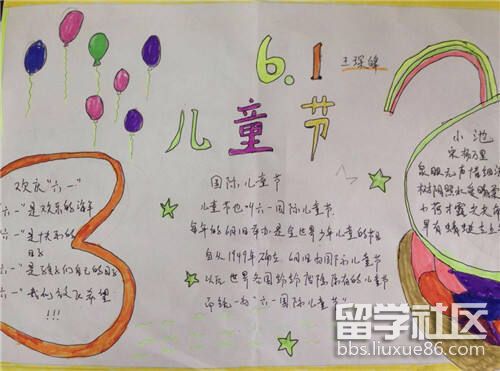 6.1
儿童节
欢庆"六一"
"六一"是欢乐的海洋
"六一"是快乐的
日
"六一"
希望
!!!
国际儿童节
儿童节也叫六一国际儿童节
每年的6月1日
是全世界少年儿童的节日
自从1949年
6月1日为国际儿童节
以后世界各国纷纷
儿童节
统一为"六一国际儿童节"
小池
宋 杨万里
泉眼无声惜细流
树阴照水爱晴柔
小荷才露尖尖角
早有蜻蜓立上头
留学社区
bbs.liuxue86.com